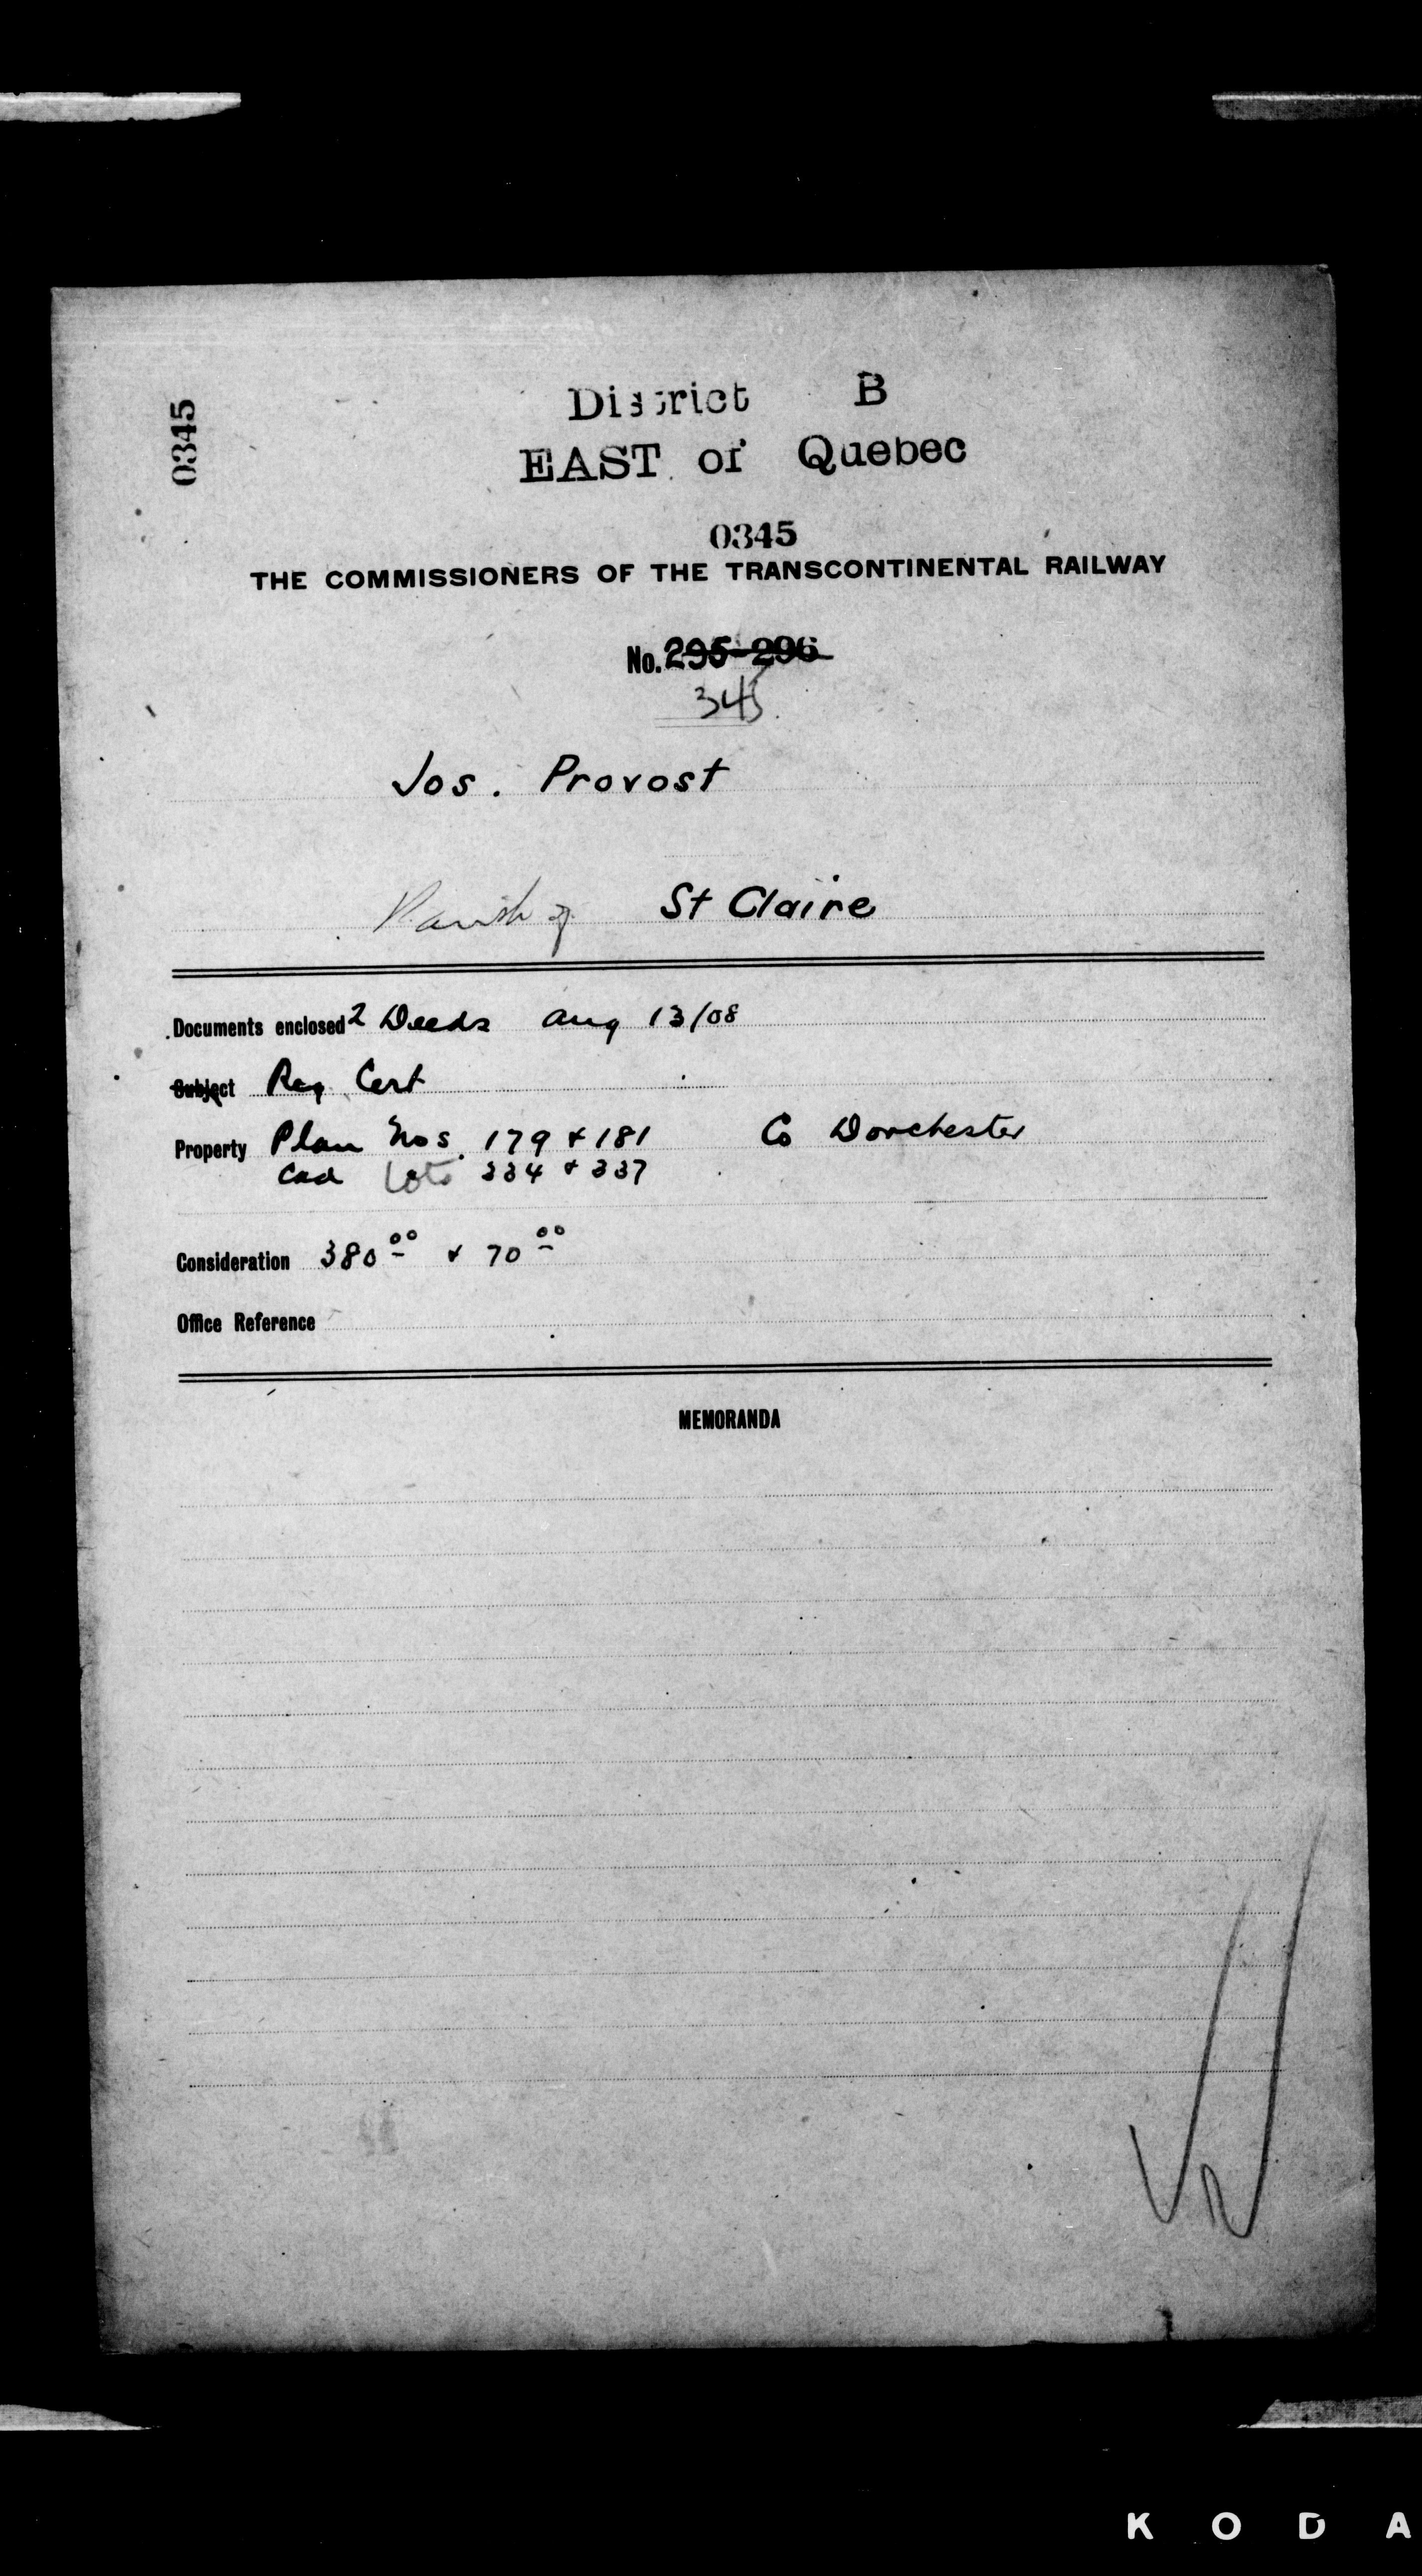 0345
District B
EAST of Quebec
0345
THE COMMISSIONERS OF THE TRANSCONTINENTAL RAILWAY
No. 295-296
345
Jos. Provost
Parish of St Claire
Documents enclosed 2 Deeds Aug 13/08
Subject Reg Cert
Property Plan Nos. 179 & 181 Co Dorchester
Cad Lots 334 & 337
Consideration 380 00 & 70 00
Office Reference
MEMORANDA
KODA